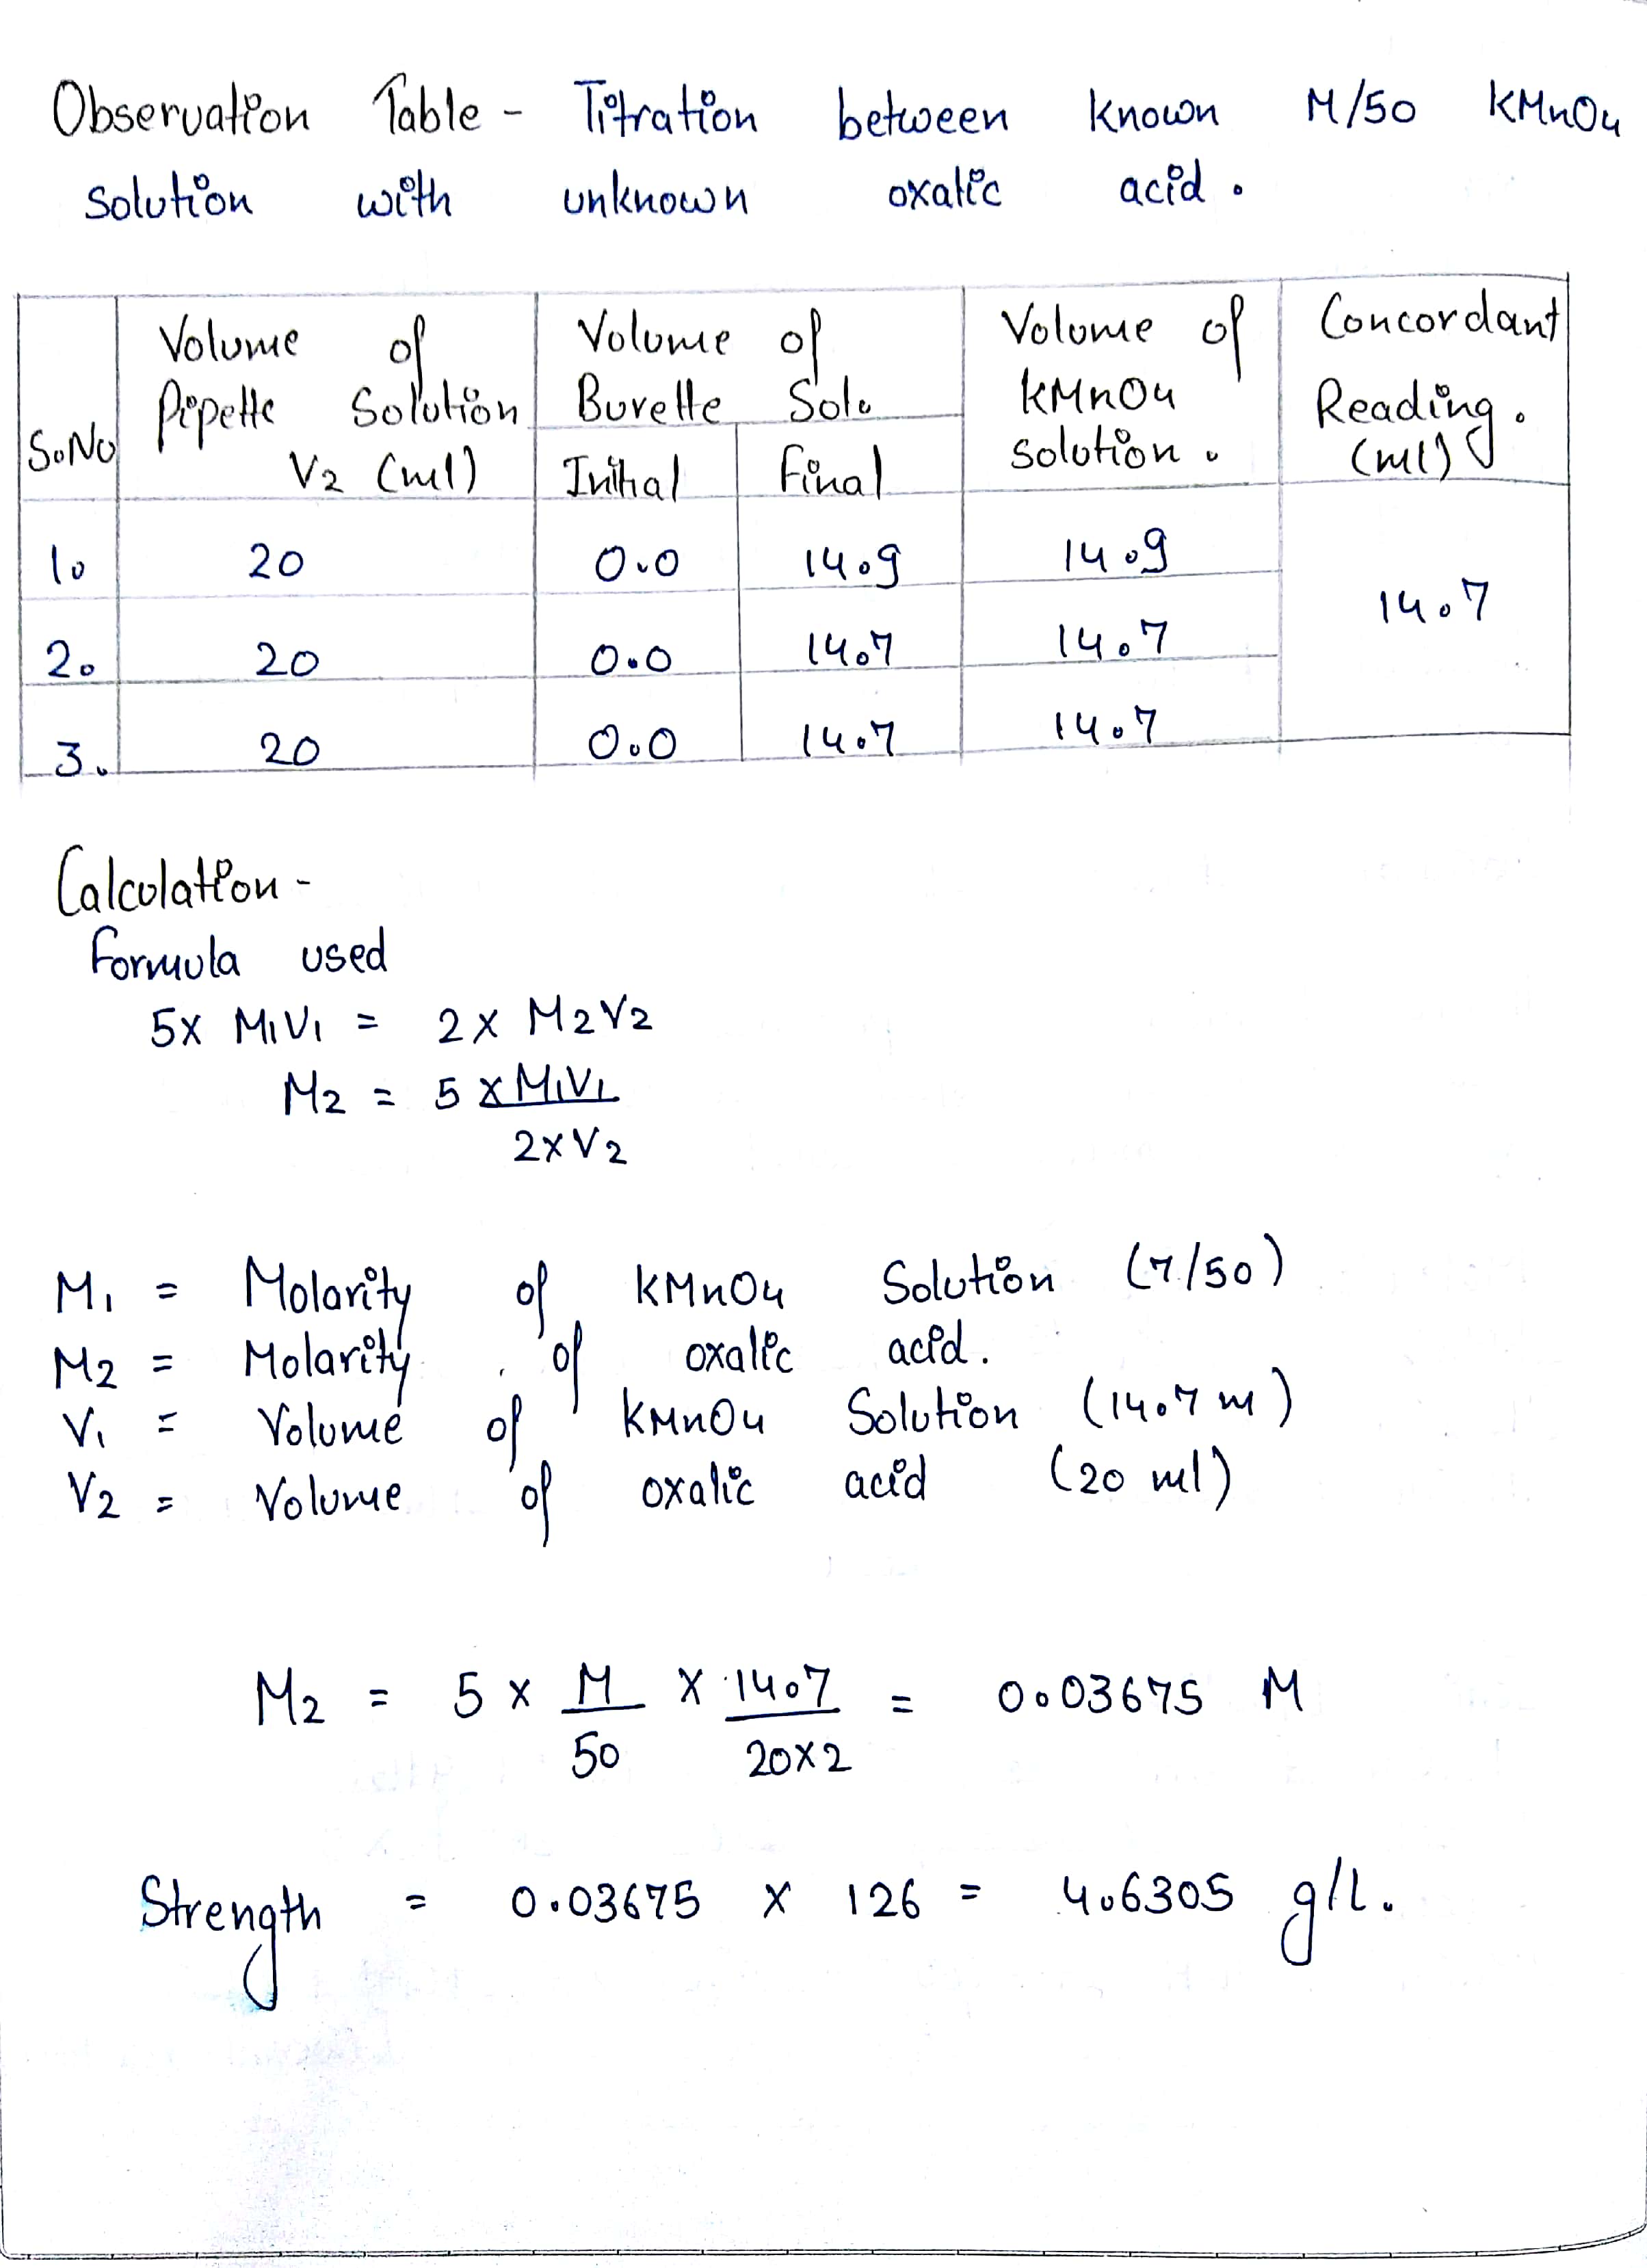 Observation Table - Titration between known M/50 KMnO4
solution with unknown oxalic acid.
S.No Volume of Pipette Solution V2 (ml) Volume of Burette Sol. Volume of KMnO4 solution. Concordant Reading. (ml)
Initial Final
1. 20 0.0 14.9 14.9
2. 20 0.0 14.7 14.7 14.7
3. 20 0.0 14.7 14.7
Calculation -
Formula used
5x M1V1 = 2x M2V2
M2 = 5 x M1V1
2x V2
M1 = Molarity of KMnO4 Solution (7/50)
M2 = Molarity of oxalic acid.
V1 = Volume of KMnO4 Solution (14.7 m)
V2 = Volume of oxalic acid (20 ml)
M2 = 5 x M/50 x 14.7/20x2 = 0.03675 M
Strength = 0.03675 x 126 = 4.6305 g/l.